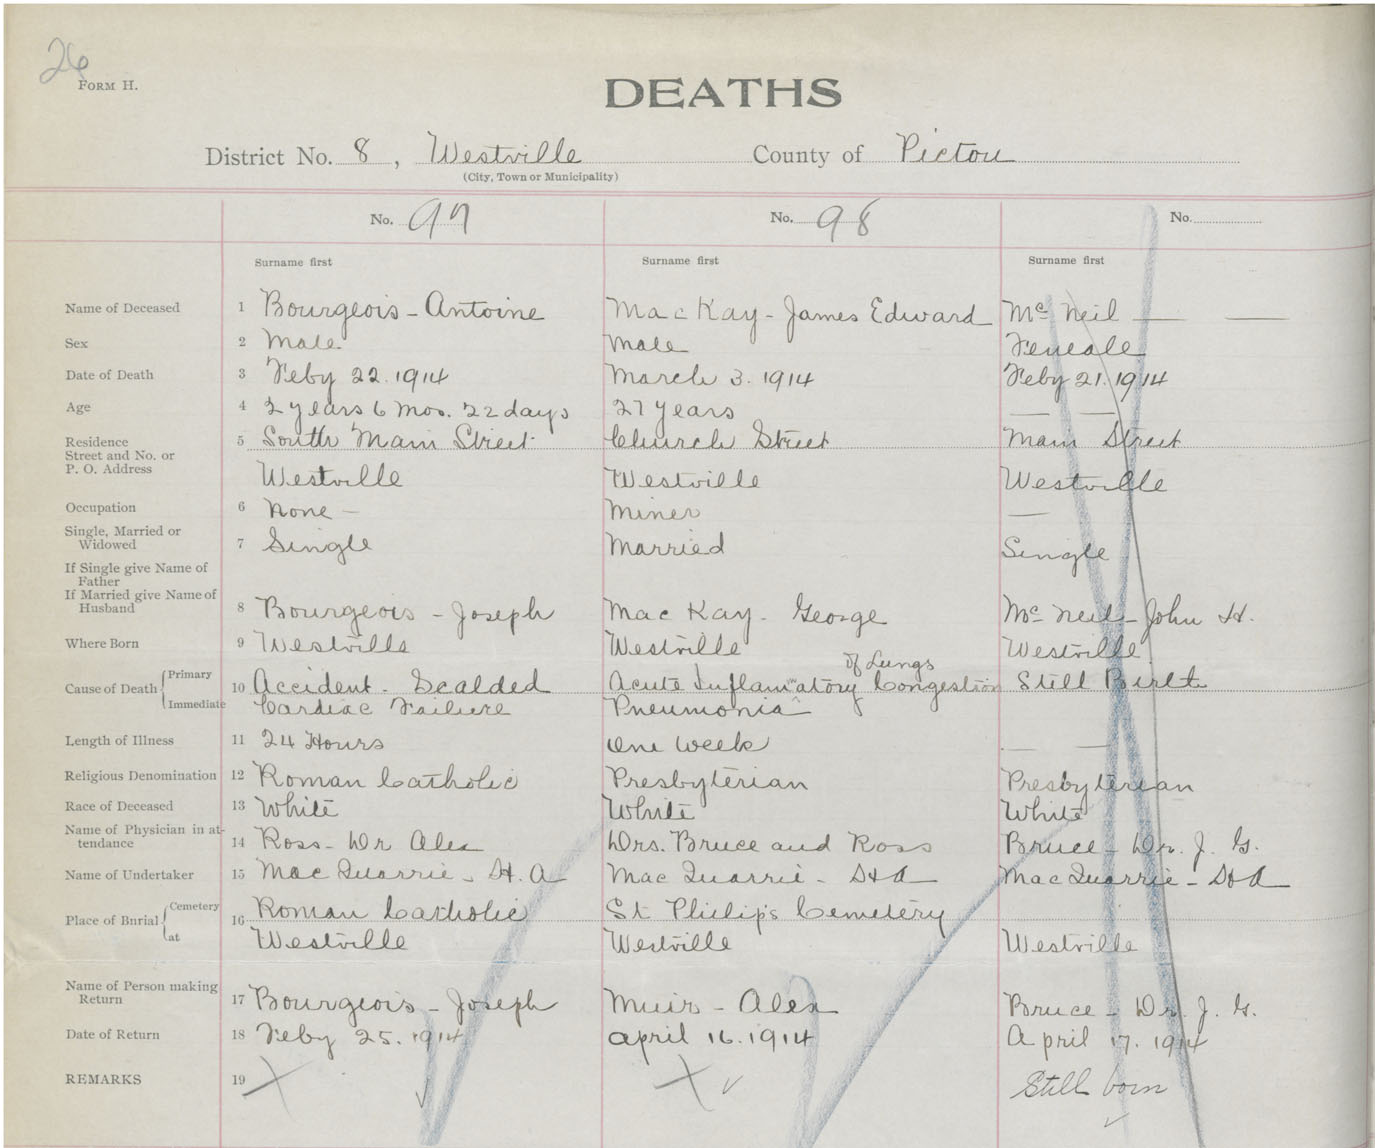 26
FORM H.
DEATHS
District No. 8, Westville County of Pictou
(City, Town or Municipality)
No. 97 No. 98 No.
Surname first Surname first Surname first
Name of Deceased 1 Bourgeois - Antoine MacKay - James Edward McNeil — —
Sex 2 Male Male Female
Date of Death 3 Feby 22. 1914 March 3. 1914 Feby 21. 1914
Age 4 2 years 6 mos. 22 days 27 years — —
Residence 5 South Main Street Church Street Main Street
Street and No. or
P. O. Address Westville Westville Westville
Occupation 6 None - Miner —
Single, Married or
Widowed 7 Single Married Single
If Single give Name of
Father
If Married give Name of
Husband 8 Bourgeois - Joseph MacKay - George McNeil - John H.
Where Born 9 Westville Westville Westville
of Lungs
Cause of Death Primary 10 Accident - Scalded Acute Inflammatory Congestion Still Birth
Immediate Cardiac Failure Pneumonia
Length of Illness 11 24 Hours One week — —
Religious Denomination 12 Roman Catholic Presbyterian Presbyterian
Race of Deceased 13 White White White
Name of Physician in at-
tendance 14 Ross - Dr Alex Drs. Bruce and Ross Bruce - Dr. J. G.
Name of Undertaker 15 MacQuarrie - H. A MacQuarrie - H A MacQuarrie - H A
Place of Burial Cemetery 16 Roman Catholic St Philip's Cemetery
at Westville Westville Westville
Name of Person making
Return 17 Bourgeois - Joseph Muir - Alex Bruce - Dr. J. G.
Date of Return 18 Feby 25. 1914 April 16. 1914 April 17. 1914
REMARKS 19 Still born